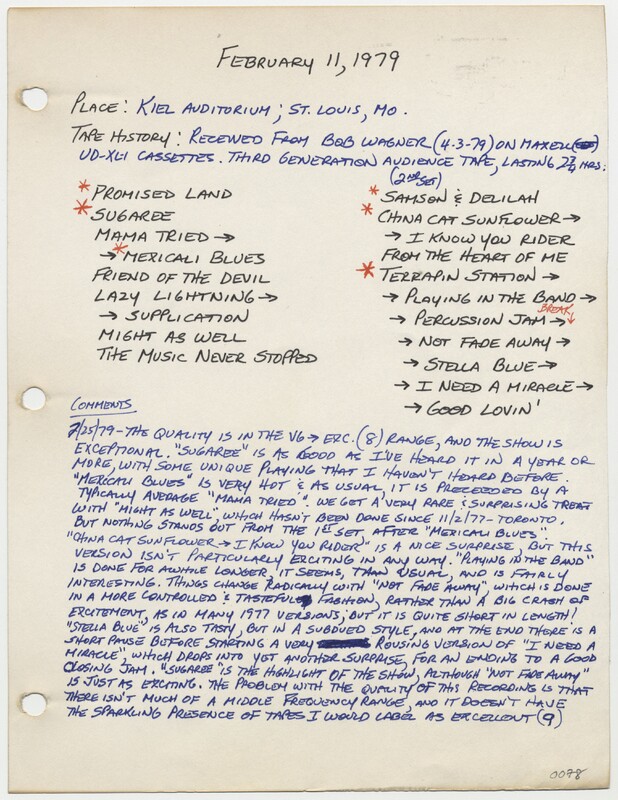 FEBRUARY 11, 1979
PLACE: KIEL AUDITORIUM; ST. LOUIS, MO.
TAPE HISTORY: RECEIVED FROM BOB WAGNER (4-3-79) ON MAXELL
UD-XLI CASSETTES. THIRD GENERATION AUDIENCE TAPE, LASTING 2 3/4 HRS.
* PROMISED LAND
* SUGAREE
MAMA TRIED →
→ * MEXICALI BLUES
FRIEND OF THE DEVIL
LAZY LIGHTNING →
→ SUPPLICATION
MIGHT AS WELL
THE MUSIC NEVER STOPPED
(2ND SET)
* SAMSON & DELILAH
* CHINA CAT SUNFLOWER →
→ I KNOW YOU RIDER
FROM THE HEART OF ME
* TERRAPIN STATION →
→ PLAYING IN THE BAND →
BREAK ↓
→ PERCUSSION JAM →
→ NOT FADE AWAY →
→ STELLA BLUE →
→ I NEED A MIRACLE →
→ GOOD LOVIN'
COMMENTS
7/25/79 - THE QUALITY IS IN THE VG → EXC. (8) RANGE, AND THE SHOW IS
EXCEPTIONAL. "SUGAREE" IS AS GOOD AS I'VE HEARD IT IN A YEAR OR
MORE, WITH SOME UNIQUE PLAYING THAT I HAVEN'T HEARD BEFORE.
"MEXICALI BLUES" IS VERY HOT & AS USUAL, IT IS PRECEEDED BY A
TYPICALLY AVERAGE "MAMA TRIED". WE GET A VERY RARE & SURPRISING TREAT
WITH "MIGHT AS WELL", WHICH HASN'T BEEN DONE SINCE 11/2/77 - TORONTO.
BUT NOTHING STANDS OUT FROM THE 1ST SET, AFTER "MEXICALI BLUES".
"CHINA CAT SUNFLOWER → I KNOW YOU RIDER" IS A NICE SURPRISE, BUT THIS
VERSION ISN'T PARTICULARLY EXCITING IN ANY WAY. "PLAYING IN THE BAND"
IS DONE FOR AWHILE LONGER, IT SEEMS, THAN USUAL, AND IS FAIRLY
INTERESTING. THINGS CHANGE RADICALLY WITH "NOT FADE AWAY", WHICH IS DONE
IN A MORE CONTROLLED & TASTEFUL FASHION, RATHER THAN A BIG CRASH OF
EXCITEMENT, AS IN MANY 1977 VERSIONS; BUT IT IS QUITE SHORT IN LENGTH!
"STELLA BLUE" IS ALSO TASTY, BUT IN A SUBDUED STYLE, AND AT THE END THERE IS A
SHORT PAUSE BEFORE STARTING A VERY ROUSING VERSION OF "I NEED A
MIRACLE", WHICH DROPS INTO YET ANOTHER SURPRISE, FOR AN ENDING TO A GOOD
CLOSING JAM. "SUGAREE" IS THE HIGHLIGHT OF THE SHOW, ALTHOUGH "NOT FADE AWAY"
IS JUST AS EXCITING. THE PROBLEM WITH THE QUALITY OF THIS RECORDING IS THAT
THERE ISN'T MUCH OF A MIDDLE FREQUENCY RANGE, AND IT DOESN'T HAVE
THE SPARKLING PRESENCE OF TAPES I WOULD LABEL AS EXCELLENT (9)
0078